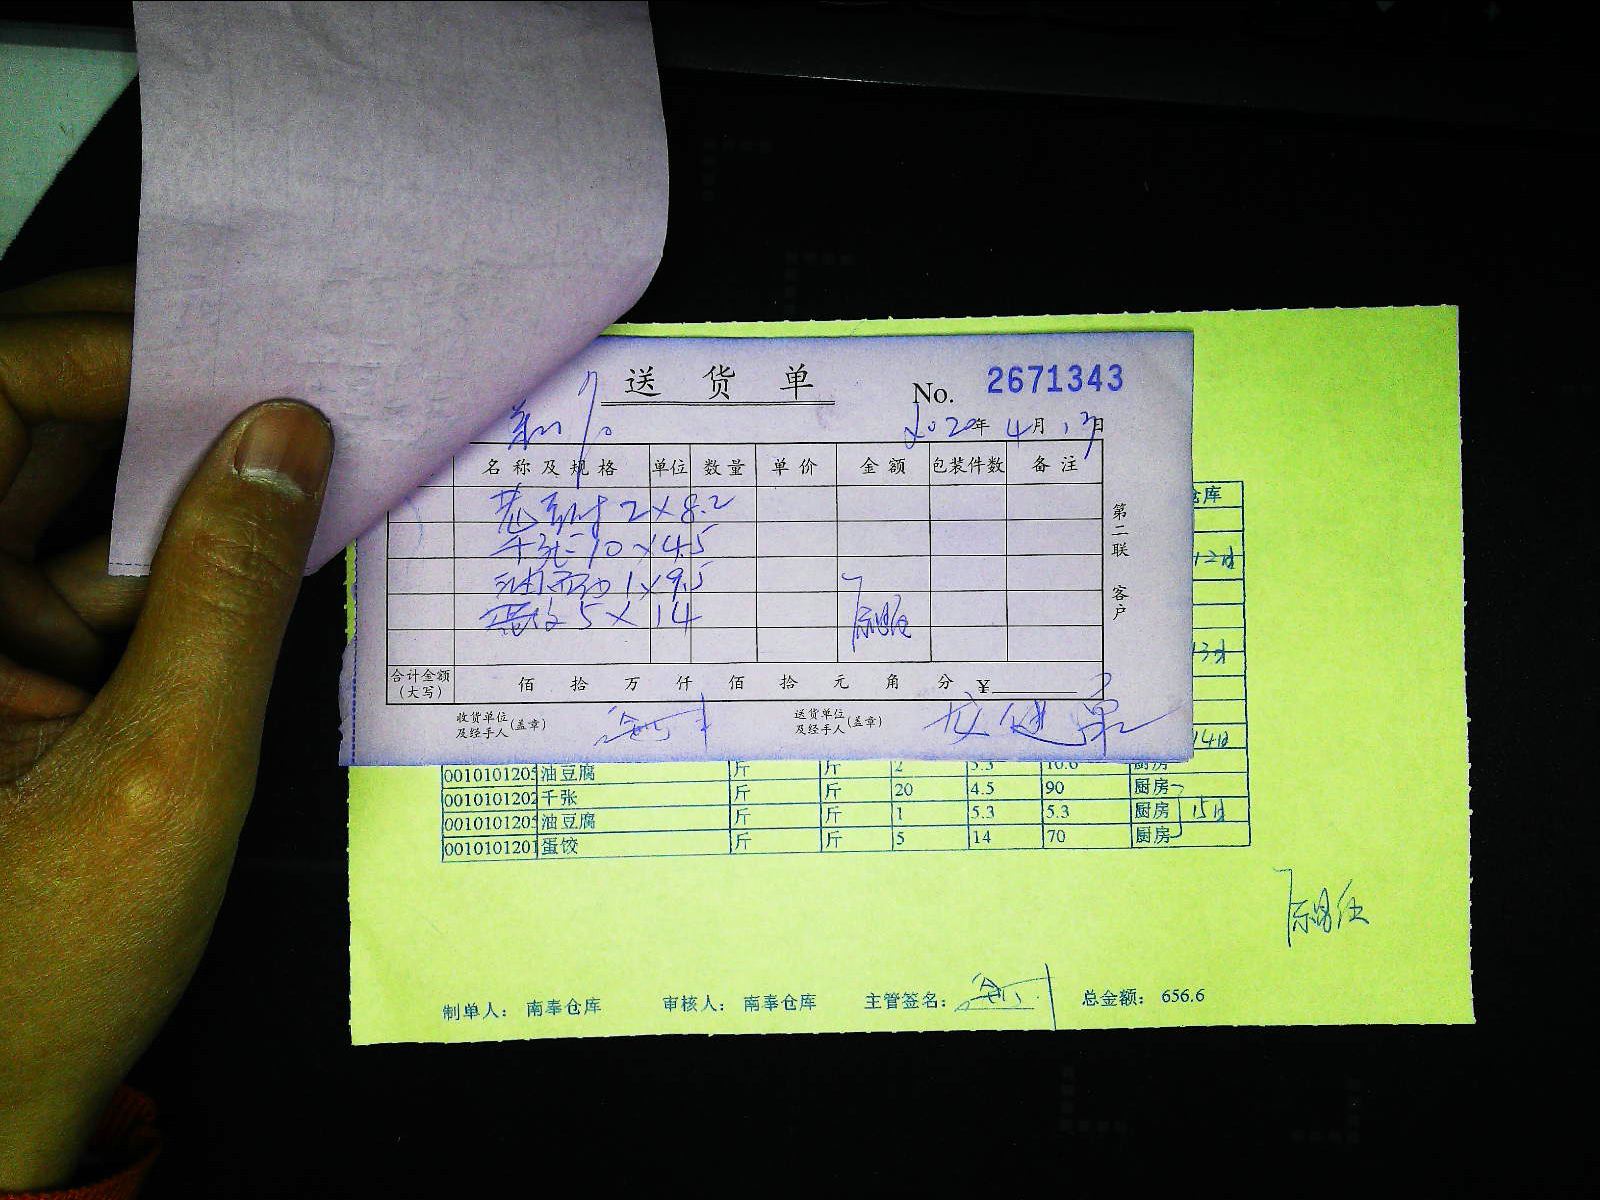 送货单
No. 2671343
2020年4月13日
名称及规格 单位 数量 单价 金额 包装件数 备注
2×8.2
千张 10×4.5
油豆 1×9.5
蛋饺 5×14
第二联 客户
合计金额(大写) 佰 拾 万 仟 佰 拾 元 角 分 ¥
收货单位及经手人(盖章) 送货单位及经手人(盖章)
仓库
12日
13日
14日
油豆腐 斤 斤 2 5.3 10.6 厨房
0010101202 千张 斤 斤 20 4.5 90 厨房
油豆腐 斤 斤 1 5.3 5.3 厨房 15日
0010101201 蛋饺 斤 斤 5 14 70 厨房
制单人: 南奉仓库 审核人: 南奉仓库 主管签名: 总金额: 656.6